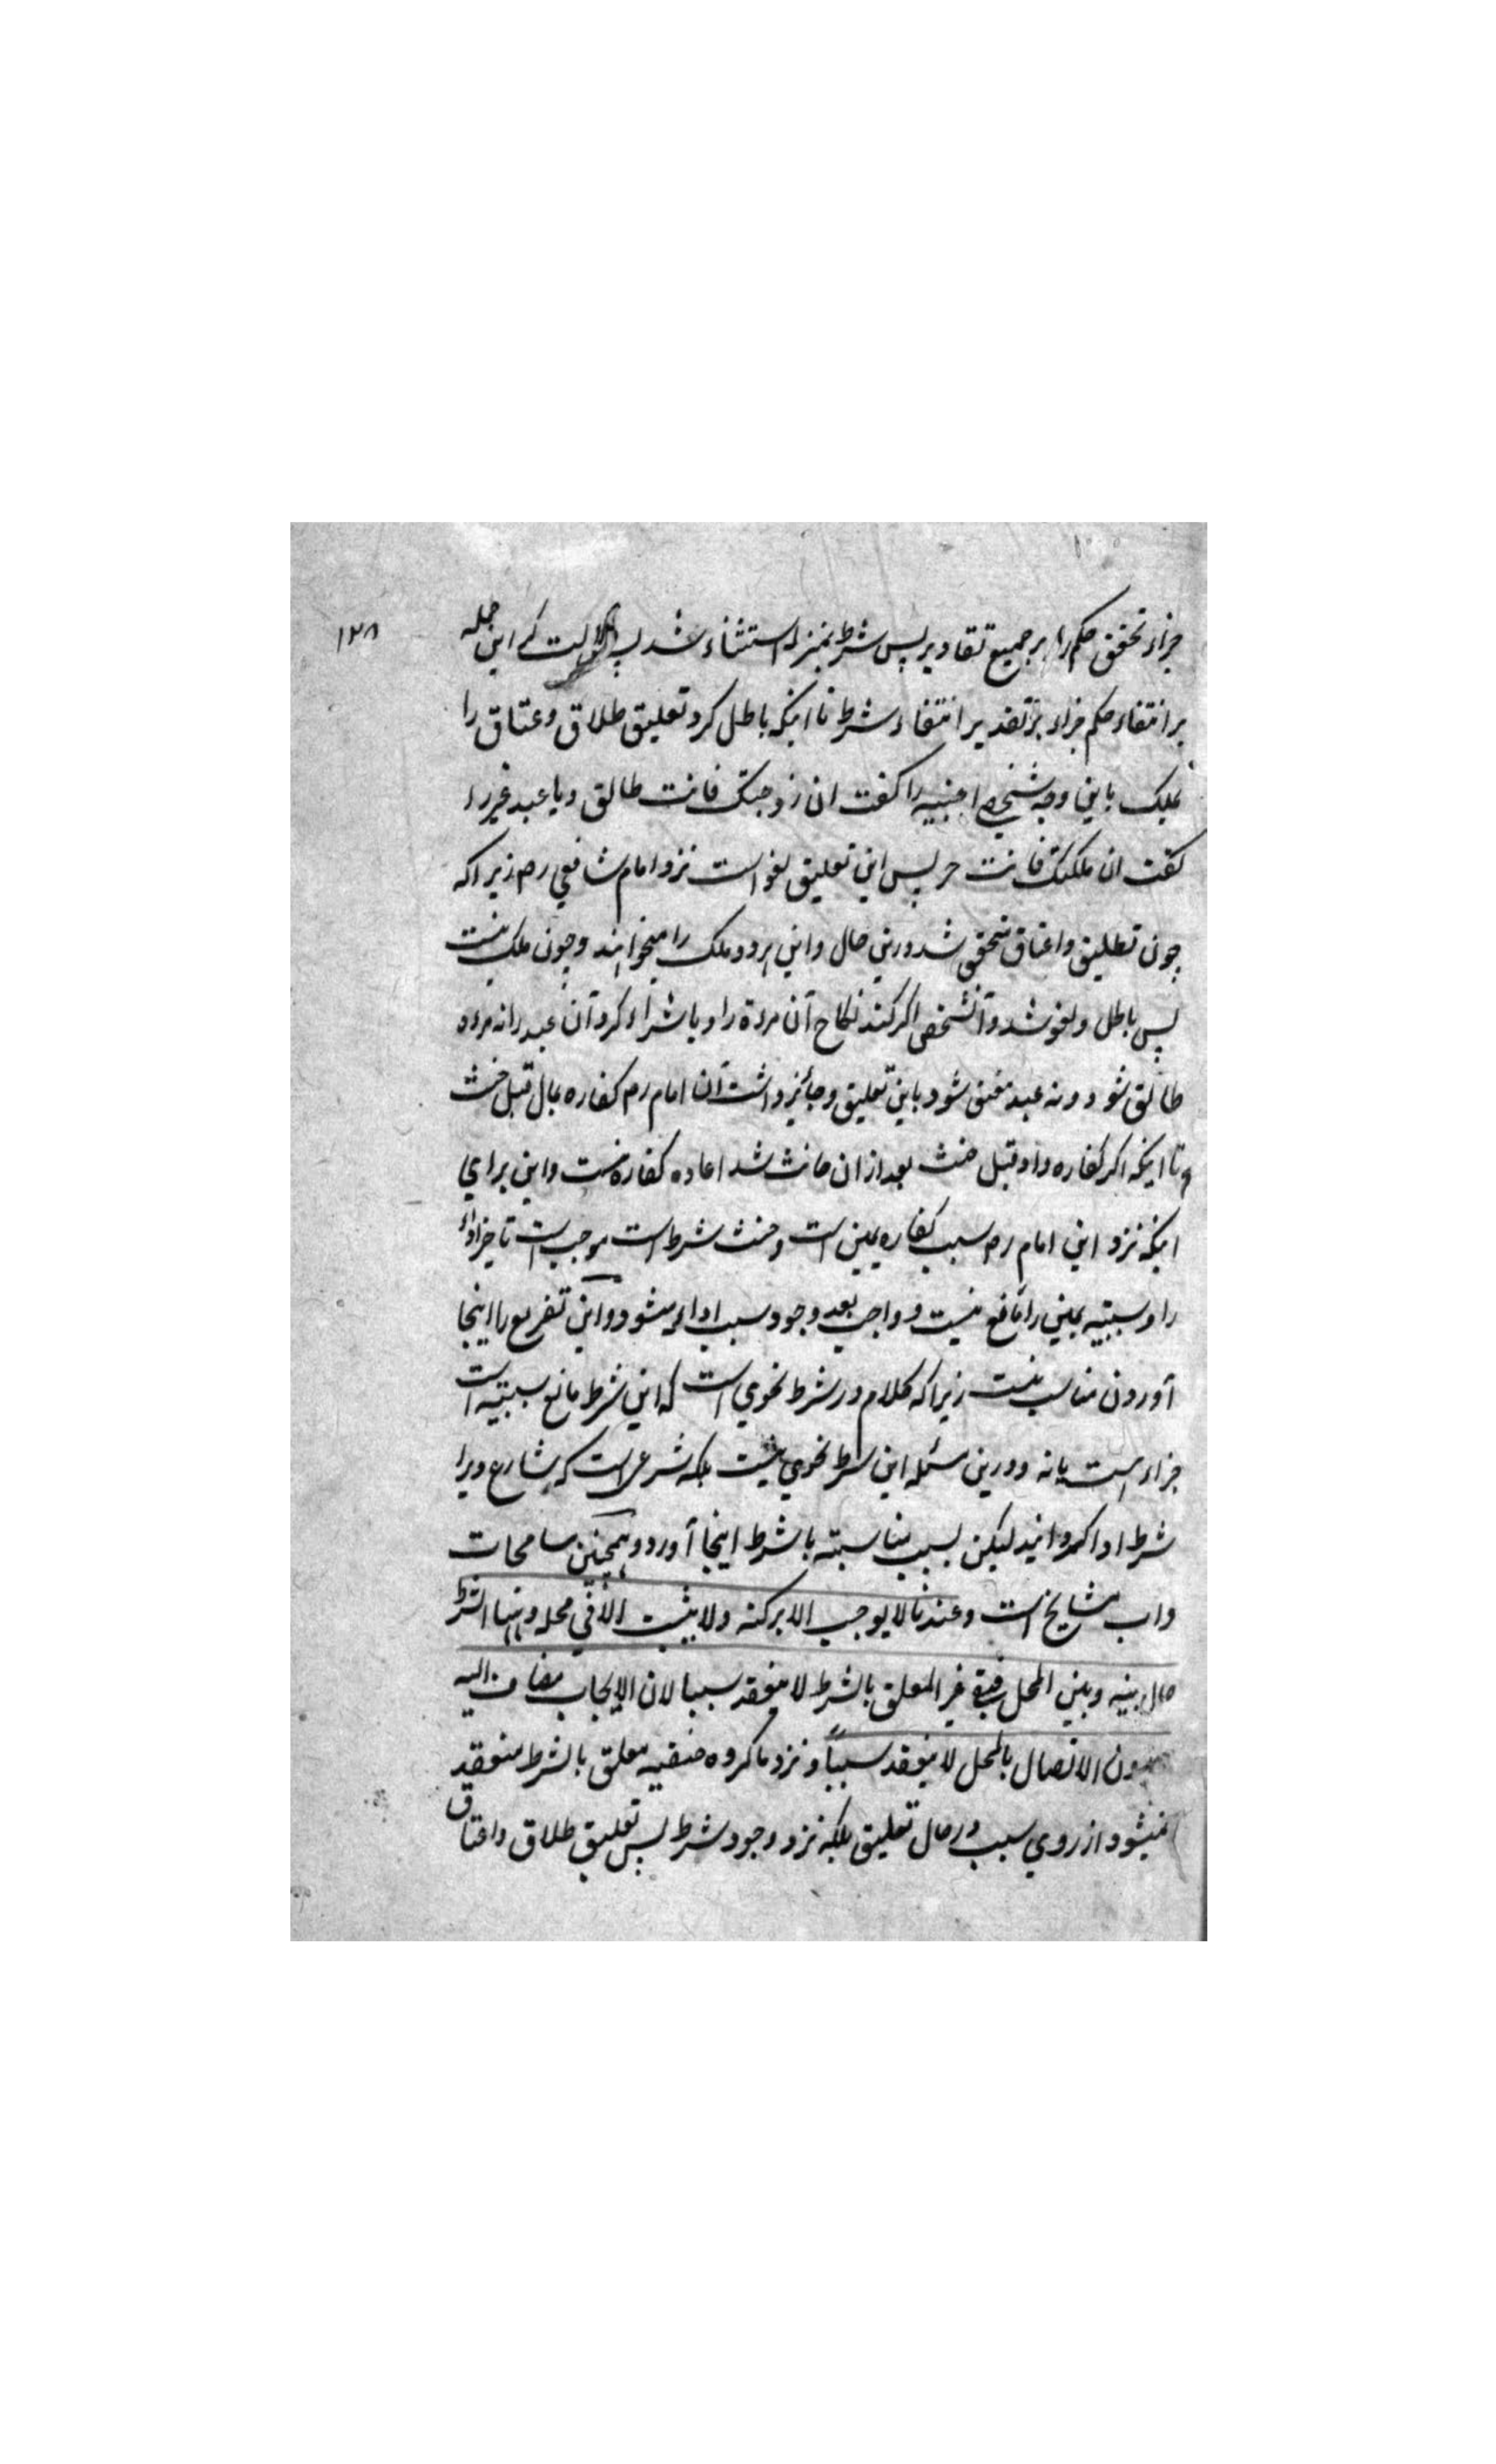 ۱۲۸
جزاء تحقق حکم را بر جمیع تقادیر پس شرط بمنزله استثناء شد پس دلالت کند این جمله
بر انتفاء حکم جزاء بر تقدیر انتفاء شرط تا اینکه باطل کرد تعلیق طلاق و عتاق را
بملک باین وجه شخصی اجنبیه را کفت ان زوجتک فانت طالق و یا عبد غیر را
کفت ان ملکتک فانت حر پس این تعلیق لغو است نزد امام شافعی رح زیرا که
چون تطلیق و اعتاق متحقق شد درین حال و این هر دو ملک را میخواهند و چون ملک نیست
پس باطل و لغو شد و آنشخص اکر کند نکاح آن مرءة را و یا شراء کرد آن عبد را نه مرءه
طالق شود و نه عبد معتق شود باین تعلیق و جائز داشت آن امام رح کفاره بمال قبل حنث
و تا اینکه اکر کفاره داد قبل حنث بعد ازان حانث شد اعاده کفاره نیست و این برای
اینکه نزد این امام رح سبب کفاره یمین است و حنث شرط است موجب است تاخر اداء
را و سببیه یمین را مانع نیست و واجب بعد وجود سبب اداء میشود و این تفریع را اینجا
آوردن مناسب نیست زیرا که کلام در شرط نحوی است که این شرط مانع سببیه است
جزاء است یا نه و درین مسئله این شرط نحوی نیست بلکه شرعی است که شارع ویرا
شرط ادا کردانید لیکن بسبب مناسبته با شرط اینجا آورد و همچنین مسامحات
داب مشایخ است وعندنا لا یوجب الا برکنه ولا یثبت الا فی محله وههنا الشرط
حال بینه وبین المحل فبقی غیر المعلق بالشرط لا ینعقد سببا لان الایجاب مضاف الیه
وبدون الاتصال بالمحل لا ینعقد سبباً و نزد ما کروه حنفیه معلق بالشرط منعقد
نمیشود از روی سبب در حال تعلیق بلکه نزد وجود شرط پس تعلیق طلاق و اعتاق